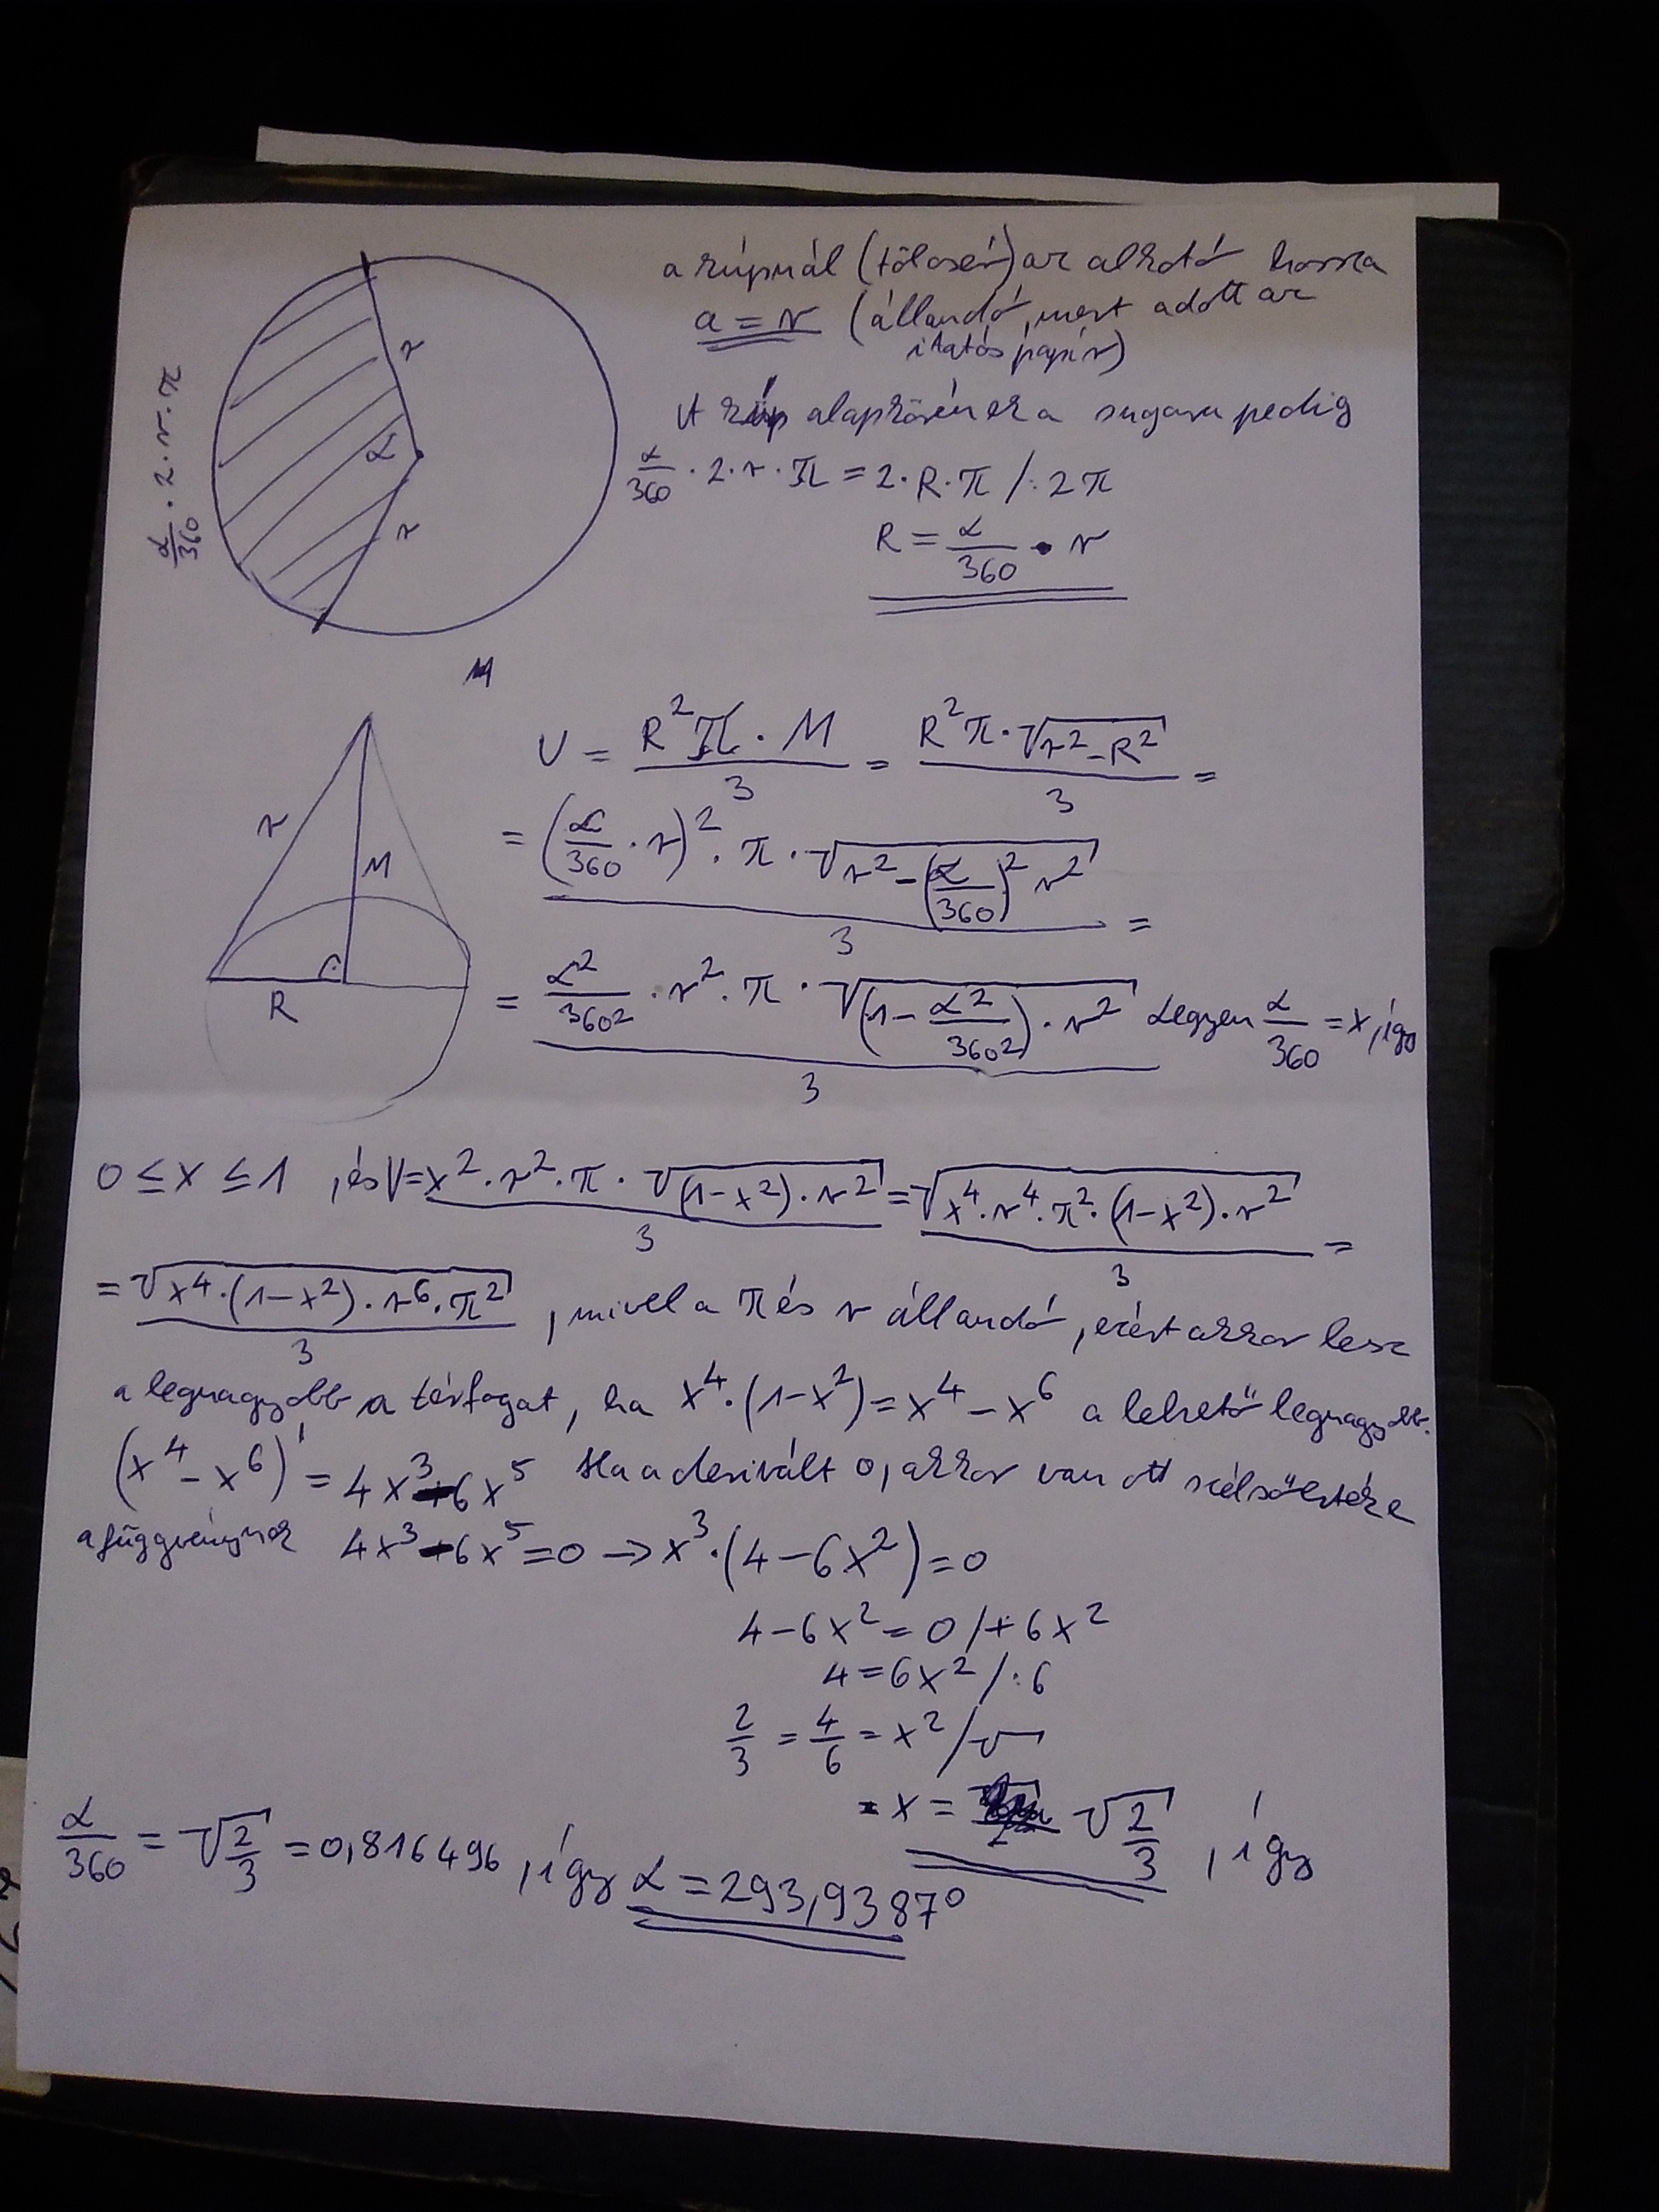 a kúpnál (tölcsér) az alkotó hossza
a = r (állandó, mert adott az
itatós papír)
A kúp alapkörének a sugara pedig
α/360 · 2 · r · π = 2 · R · π / : 2π
R = α/360 · r
α/360 · 2 · r · π
r
α
r
M
V = R²π · M / 3 = R²π · √(r² - R²) / 3 =
= (α/360 · r)² · π · √(r² - (α/360)² r²) / 3 =
= α²/360² · r² · π · √((1 - α²/360²) · r²) / 3 Legyen α/360 = x, így
r
M
R
0 ≤ x ≤ 1 , és V = x² · r² · π · √((1-x²) · r²) / 3 = √(x⁴ · r⁴ · π² · (1-x²) · r²) / 3 =
= √(x⁴ · (1-x²) · r⁶ · π²) / 3 , mivel a π és r állandó, ezért akkor lesz
a legnagyobb a térfogat, ha x⁴ · (1-x²) = x⁴ - x⁶ a lehető legnagyobb.
(x⁴ - x⁶)' = 4x³ - 6x⁵ Ha a derivált 0, akkor van ott szélsőértéke
a függvénynek 4x³ - 6x⁵ = 0 → x³ · (4 - 6x²) = 0
4 - 6x² = 0 / + 6x²
4 = 6x² / : 6
2/3 = 4/6 = x² / √
x = √(2/3) , így
α/360 = √(2/3) = 0,816496 , így α = 293,9387°